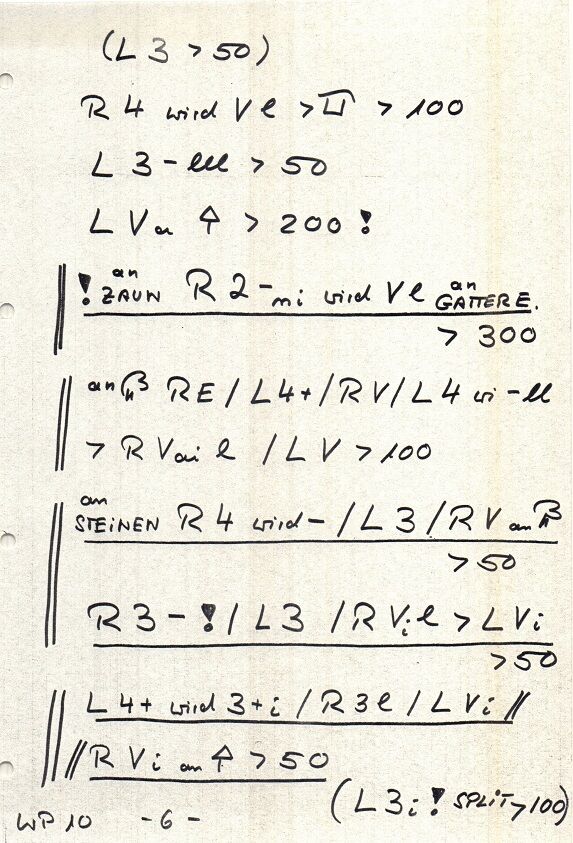 (L 3 > 50)
R 4 wird V l > > 100
L 3 - lll > 50
L V an ↑ > 200 !
! an ZAUN R 2 - ni wird V l an GATTERE.
> 300
an RE / L 4 + / R V / L 4 wi - ll
> R V ai l / L V > 100
an STEINEN R 4 wird - / L 3 / R V an
> 50
R 3 - ! / L 3 / R V i l > L V i
> 50
L 4 + wird 3 + i / R 3 l / L V i //
// R V i an ↑ > 50
(L 3 i ! SPLIT > 100)
WP 10 - 6 -